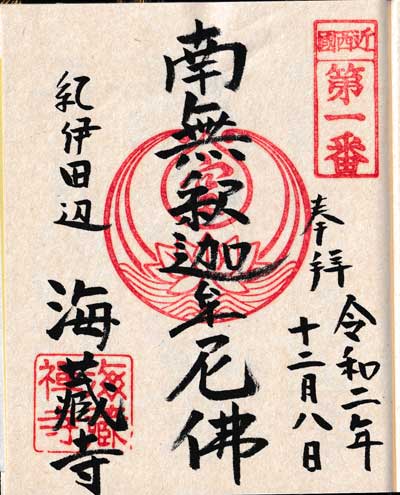 近西國
第一番
奉拜
令和二年
十二月八日
南無釈迦牟尼佛
紀伊田辺
海藏寺
海藏
禅寺